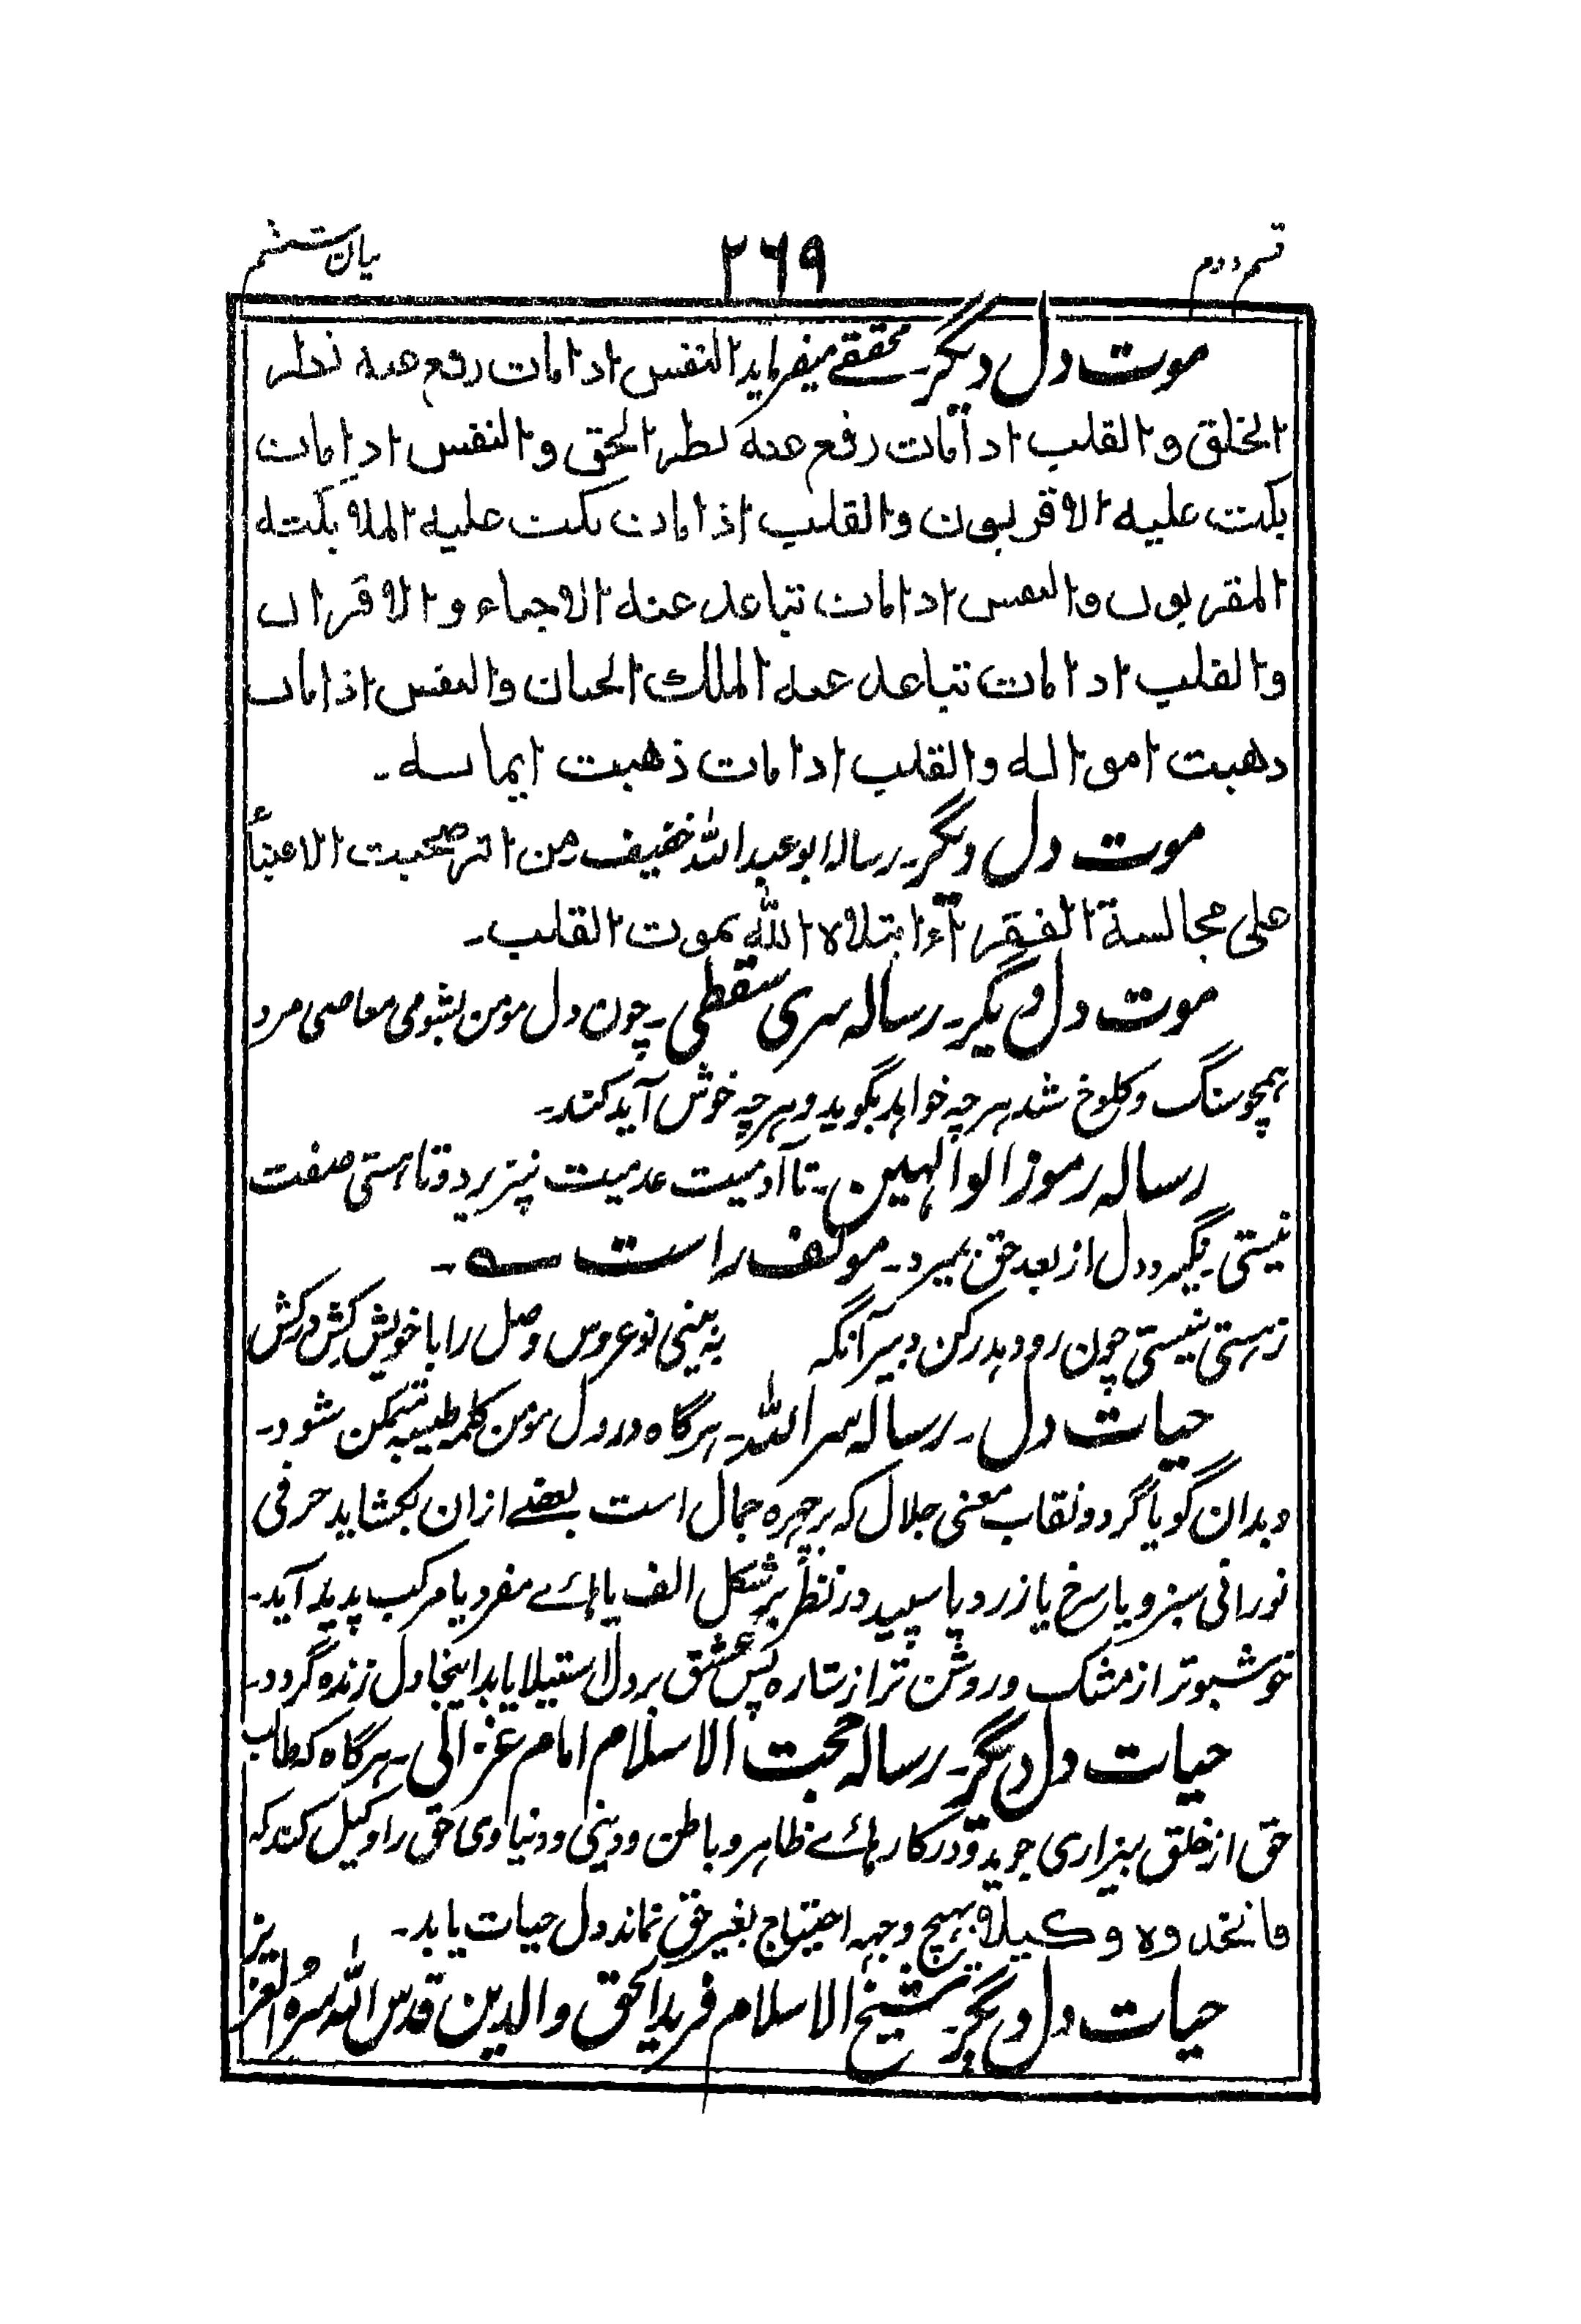 قسم دوم
۲۶۹
بیان ششم
موت دل دیگر۔ محققے میفرماید النفس اذا مات رفع عنه نظر
الخلق و القلب اذا مات رفع عنه نظر الحق و النفس اذا مات
بکت علیه الاقربون و القلب اذا مات بکت علیه الملائکته
المقربون و النفس اذا مات تباعد عنه الاحباء و الاقران
و القلب اذا مات تباعد عنه الملك الحنان و النفس اذا مات
ذهبت امواله و القلب اذا مات ذهبت ایمانه۔
موت دل دیگر۔ رساله ابو عبد الله خفیف من اثر صحبت الاغنیاء
علی مجالسة الفقراء ابتلاه الله بموت القلب۔
موت دل دیگر۔ رساله سری سقطی۔ چون دل مومن بشومی معاصی مرد
همچو سنگ و کلوخ شد هر چه خواهد بگوید و هر چه خوش آید کند۔
رساله رموز الوالهین۔ تا آدمیت عدمیت نپذیرد و تا هستی صفت
نیستی۔ نگیرد دل از بعد حق نمیرد۔ مولف راست ؎۔
ز هستی نیستی چون رو دهد رکن دبیر آنگه به بینی نو عروس وصل را با خویش کش درکش
حیات دل۔ رساله سر الله۔ هرگاه در دل مومن کلمه طیبه متمکن شود۔
و بدان گویا گردد نقاب معنی جلال که بر چهره جمال است بعضے ازان بکشاید حرفی
نورانی سبز و یا سرخ یا زرد و یا سپید در نظر بر شکل الف یا هاے مفرد یا مرکب پدید آید۔
خوشبوتر از مشک و روشن تر از ستاره پس عشق بر دل استیلا یابد اینجا دل زنده گردد۔
حیات دل دیگر۔ رساله حجت الاسلام امام غزالی۔ هرگاه که طالب
حق از خلق بیزاری جوید و در کارهاے ظاهر و باطن و دینی و دنیاوی حق را وکیل کند که
فاتخذوه وکیلا بهیچ وجهه احتیاج بغیر حق نماند دل حیات یابد۔
حیات دل دیگر۔ شیخ الاسلام فرید الحق والدین قدس الله سره العزیز